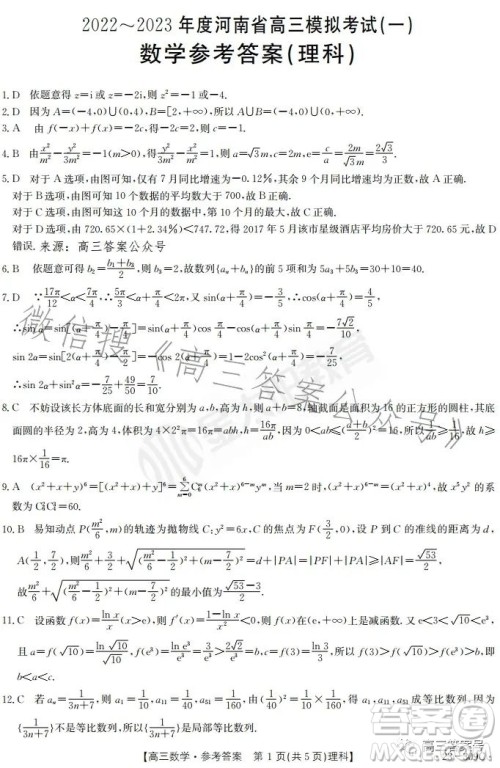 2022～2023 年度河南省高三模拟考试(一)
数学参考答案(理科)
1. D 依题意得 z=i 或 z=-i,则 z²=-1 或 -4.
2. D 因为 A=(-4,0)∪(0,4),B=[2,+∞),所以 A∪B=(-4,0)∪(0,+∞).
3. A 由 f(-x)+f(x)=-2c,得 -2c=2,则 c=-1.
4. B 由 x²/m² - y²/3m² = -1(m>0),得 y²/3m² - x²/m² = 1,则 a=√3m,c=2m,e=c/a=2m/√3m=2√3/3.
5. D 对于 A 选项,由图可知,仅有 7 月同比增速为 -0.12%,其余 9 个月同比增速均为正数,故 A 正确.
对于 B 选项,由图可知 10 个数据的平均数大于 700,故 B 正确.
对于 C 选项,由图可知这 10 个月的数据中,第 10 个月的最大,故 C 正确.
对于 D 选项,由 720.65×(1+2.34%)<747.72,得 2017 年 5 月该市星级酒店平均房价大于 720.65,故 D
错误. 来源:高三答案公众号
6. B 依题意可得 b₂=(b₁+b₃)/2,则 b₃=2,故数列{aₙ+bₙ}的前 5 项和为 5a₃+5b₃=30+10=40.
7. D ∵17π/12<α<7π/4,∴5π/3<α+π/4<2π,又 sin(α+π/4)=-3/5,∴cos(α+π/4)=4/5,
∴sin α=sin[(α+π/4)-π/4]=sin(α+π/4)cos π/4-cos(α+π/4)sin π/4=-7√2/10,
sin 2α=sin[2(α+π/4)-π/2]=-cos 2(α+π/4)=-7/25,
∴sin 2α+sin²α=-7/25+49/50=7/10.
8. C 不妨设该长方体底面的长和宽分别为 a,b,高为 h,则 a+b=8,矮十字的截面是面积为 16 的正方形的圆柱,其底
面圆的半径为 2,高为 4,体积为 4×2²π=16π=abh,h=16π/ab,因为 0<ab≤((a+b)/2)²=16,所以 1/ab≥1/16,故 h≥
16π×1/16=π.
9. A (x²+x+y)⁶=[(x²+x)+y]⁶=Σ C₆ᵐ(x²+x)⁶⁻ᵐyᵐ,当 m=2 时,(x²+x)⁶⁻ᵐ=(x²+x)⁴,故 x⁵y² 的系
10. B 易知动点 P(m²/6,m)的轨迹为抛物线 C:y²=6x,C 的焦点为 F(3/2,0),设 P 到 C 的准线的距离为 d,
A(1/2,7/2),则 m²/6+3/2+√((m²/6-1/2)²+(m-7/2)²)=d+|PA|=|PF|+|PA|≥|AF|=√53/2,
故 m²/6+√((m²/6-1/2)²+(m-7/2)²) 的最小值为 (√53-3)/2.
11. C 设函数 f(x)=ln x/x(x>e),则 f′(x)=(1-ln x)/x²<0,所以 f(x)在(e,+∞)上是减函数. 又 e<3<√10<e³,
且 a=f(√10)=ln√10/√10,b=f(e³)=ln e³/e³=3/e³>2√2/e³=b,c=f(3)=ln 3/3,所以 f(e³)<f(√10)<f(3),即
b<a<c.
12. C 若 aₙ=1/(3n+7),则 a₁=1/10,a₁₁=1/40,a₅₁=1/160,由(1/40)²=1/10×1/160,得 a₁,a₁₁,a₅₁ 成等比数列. 因为
{1/(3n+7)}不是等比数列,所以{1/(3n+7)}是局部等比数列.
【高三数学·参考答案 第 1 页(共 5 页)理科】
微信搜《高三答案公众号》